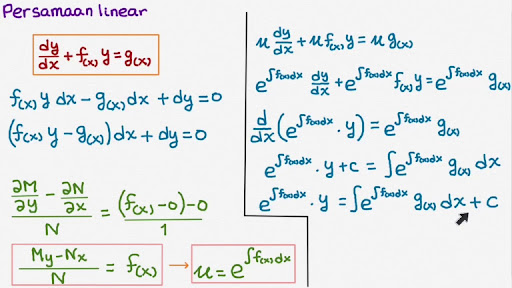 Persamaan linear
dy/dx + f(x) y = g(x)
f(x) y dx − g(x) dx + dy = 0
(f(x) y − g(x)) dx + dy = 0
(∂M/∂y − ∂N/∂x)/N = ((f(x) − 0) − 0)/1
(My − Nx)/N = f(x) → u = e^∫f(x)dx
u dy/dx + u f(x) y = u g(x)
e^∫f(x)dx dy/dx + e^∫f(x)dx f(x) y = e^∫f(x)dx g(x)
d/dx (e^∫f(x)dx · y) = e^∫f(x)dx g(x)
e^∫f(x)dx · y + c = ∫e^∫f(x)dx g(x) dx
e^∫f(x)dx · y = ∫e^∫f(x)dx g(x) dx + c